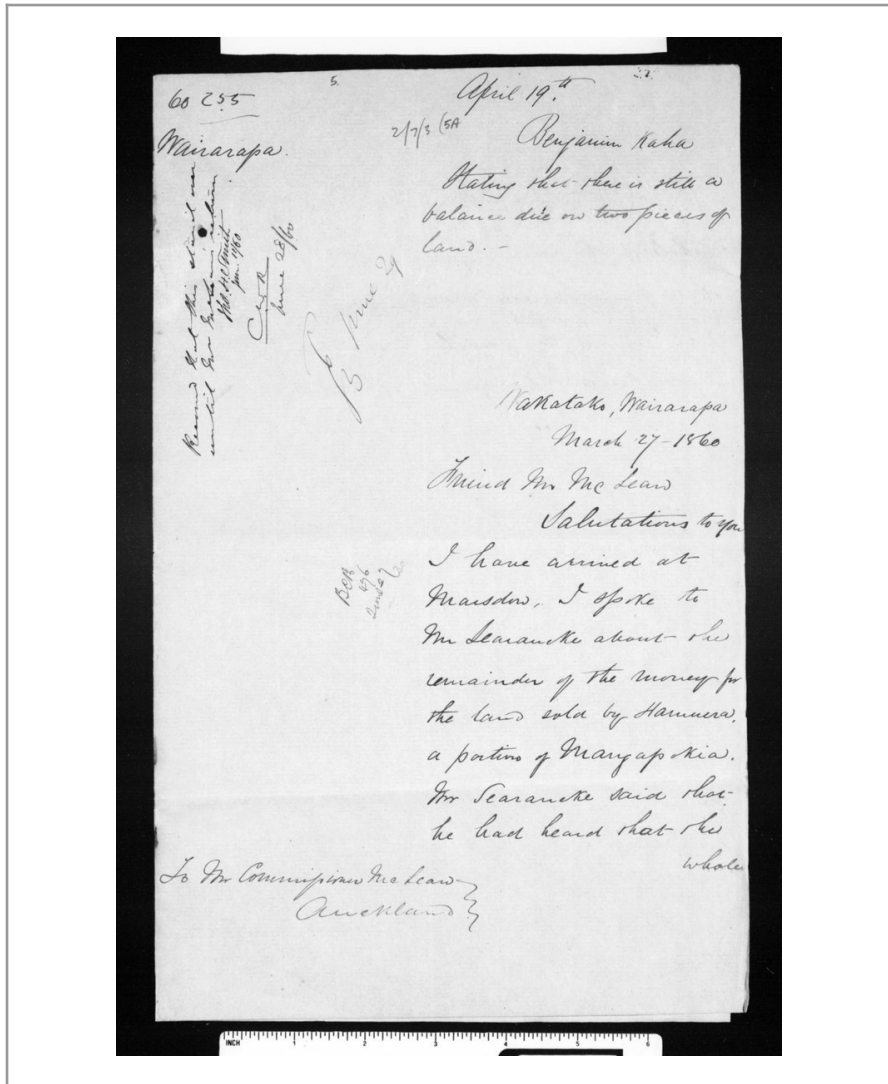 5.
60 255
Wairarapa.
April 19.th
2/7/3 (5A
Benjamin Kaha
Stating that there is still a
balance due on two pieces of
land. -
Record that this stand over
until Mr McLean's return
Tho. H. Smith
Jun. 11/60
June 28/60
Wakatako, Wairarapa
March 27 - 1860
Friend Mr McLean
Salutations to you
I have arrived at
Marsdon. I spoke to
Mr Searancke about the
remainder of the money for
the land sold by Hamuera.
a portion of Mangapokia.
Mr Searancke said that
he had heard that the
whole
To Mr Commissioner McLean
Auckland
INCH 1 2 3 4 5 6